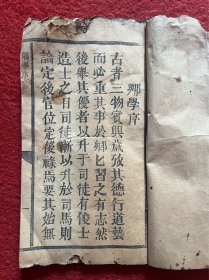 鄉學序
古者三物賓興攷其德行道藝
而必重其事於鄉已習之有志然
後舉其優者以升于司徒有俊士
造士之目司徒漸以升於司馬則
論定後官位定後祿焉要其始無